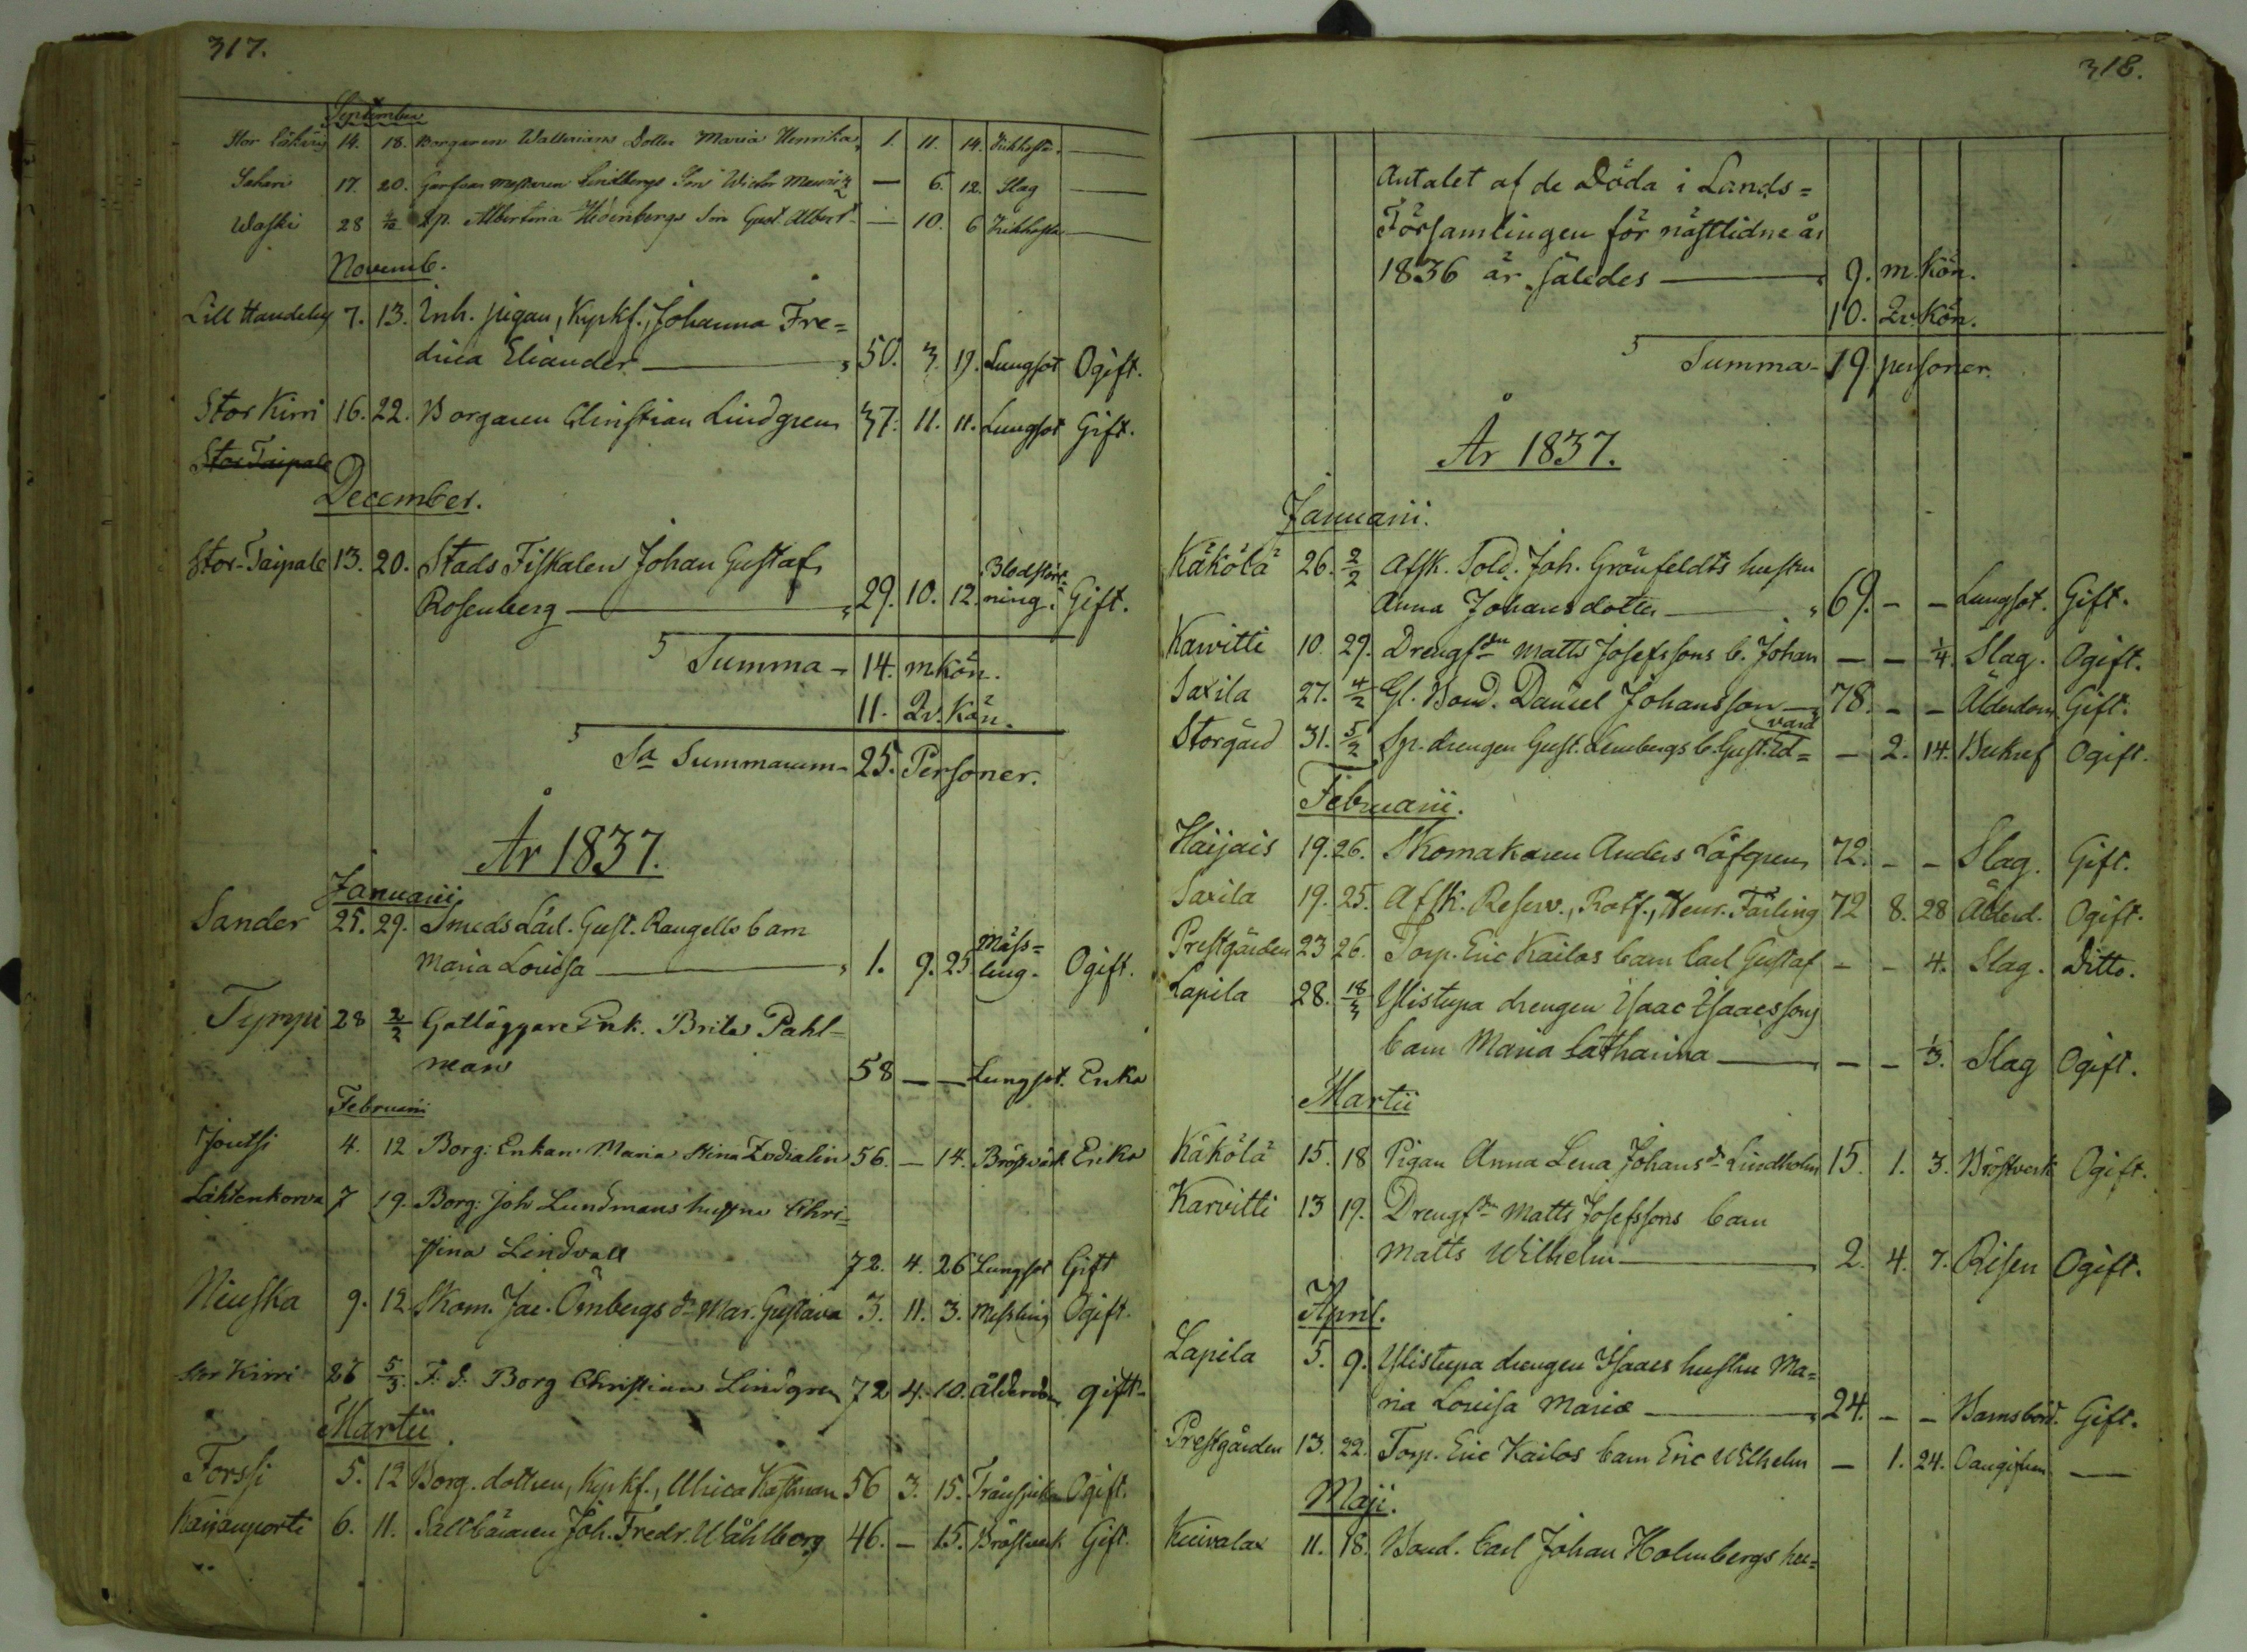 317.
September
14. 18. Borgaren Dotter Maria Henrika, 1. 11. 14. Kikhosta.
Sahari 17. 20. Lindbergs Son Wictor — 6. 12. Slag
Waski 28 Albertina Hedenbergs Son Gust. Albert — 10. 6 Kikhosta
Novemb.
Lill Haudeby 7. 13. Inh. pigan, Kyrkf., Johanna Fre=
drica Eliander 50. 3. 19. Lungsot Ogift.
Stor Kirri 16. 22. Borgaren Christian Lindgren 37. 11. 11. Lungsot Gift.
Stor Taipale
December.
Stor-Taipale 13. 20. Stads Fiskalen Johan Gustaf
Rosenberg 29. 10. 12. Blodstört-
ning. Gift.
Summa - 14. m. Kön.
11. Qv. Kön.
Sa Summarum - 25. Personer.
År 1837.
Januarii
Sander 25. 29. Smeds Lärl. Gust. Rangells barn
Maria Lovisa 1. 9. 25 Mäss=
ling. Ogift.
Tyrpi 28 2/2 Gatläggare Enk. Brita Pahl-
man 58 — — Lungsot. Enka
Februarii
Joutsi 4. 12 Borg: Enkan Maria Stina Zodialin 56. — 14. Bröstvärk Enka
Lähtenkorva 7 19. Borg: Joh Lundmans hustru Chri=
stina Lindvall 72. 4. 26 Lungsot Gift
Niuska 9. 12 Skom. Jac. Örnbergs dr Mar. Gustava 3. 11. 3. Messling Ogift.
Stor Kirri 26 5/3. F. d. Borg Christian Lindgren 72 4. 10. ålderdom gift-
Martii
Forssi 5. 12 Borg. dottren, Kyrkf., Ulrica Kastman 56 3. 15. Ogift.
Kaijanporti 6. 11. Saltbäraren Joh. Fredr. Wåhlberg 46. — 15. Bröstverk Gift.
318.
Antalet af de Döda i Lands=
Församlingen för nästlidne år
1836 är således 9. m. Kön.
10. Qv. Kön.
Summa - 19 personer.
År 1837.
Januarii.
Käkölä 26. 2/2 Afsk. Sold. Joh. Grönfeldts hustru
Anna Johansdotter 69. - - Lungsot. Gift.
Karvitti 10. 29. Drengsdn Matts Josefssons b. Johan — — 1/4. Slag. Ogift.
Saxila 27. 4/2 Gl. Bond. Daniel Johansson 78. - - Ålderdom Gift.
Storgård 31. 5/2 Sp. drengen Gust. Lembergs b. Gust. Ed=
vard - 2. 14. Bukref Ogift.
Februarii.
Haijais 19. 26. Skomakaren Anders Löfgren 72. - - Slag. Gift.
Saxila 19. 25. Afsk. Reserv., Rotf., Henr. Färling 72 8. 28 Ålderd. Ogift.
Prestgården 23 26. Torp. Eric Kailas barn Carl Gustaf - - 4. Slag. Ditto.
Lapila 28. 18/3 Ylistupa drengen Isaac Isaacssons
barn Maria Catharina — - 1/3. Slag Ogift.
Martii
Käkölä 15. 18 Pigan Anna Lena Johansdr Lindholm 15. 1. 3. Bröstverk Ogift.
Karvitti 13 19. Drengsdn Matts Josefssons barn
Matts Wilhelm 2. 4. 7. Risen Ogift.
April.
Lapila 5. 9. Ylistupa drengen Isaacs hustru Ma=
ria Lovisa Mariæ 24. - - Barnsbörd. Gift.
Prestgården 13. 22. Torp. Eric Kailos barn Eric Wilhelm — 1. 24. Oangifven —
Maji.
Kuivalax 11. 18. Bond. Carl Johan Holmbergs hu=